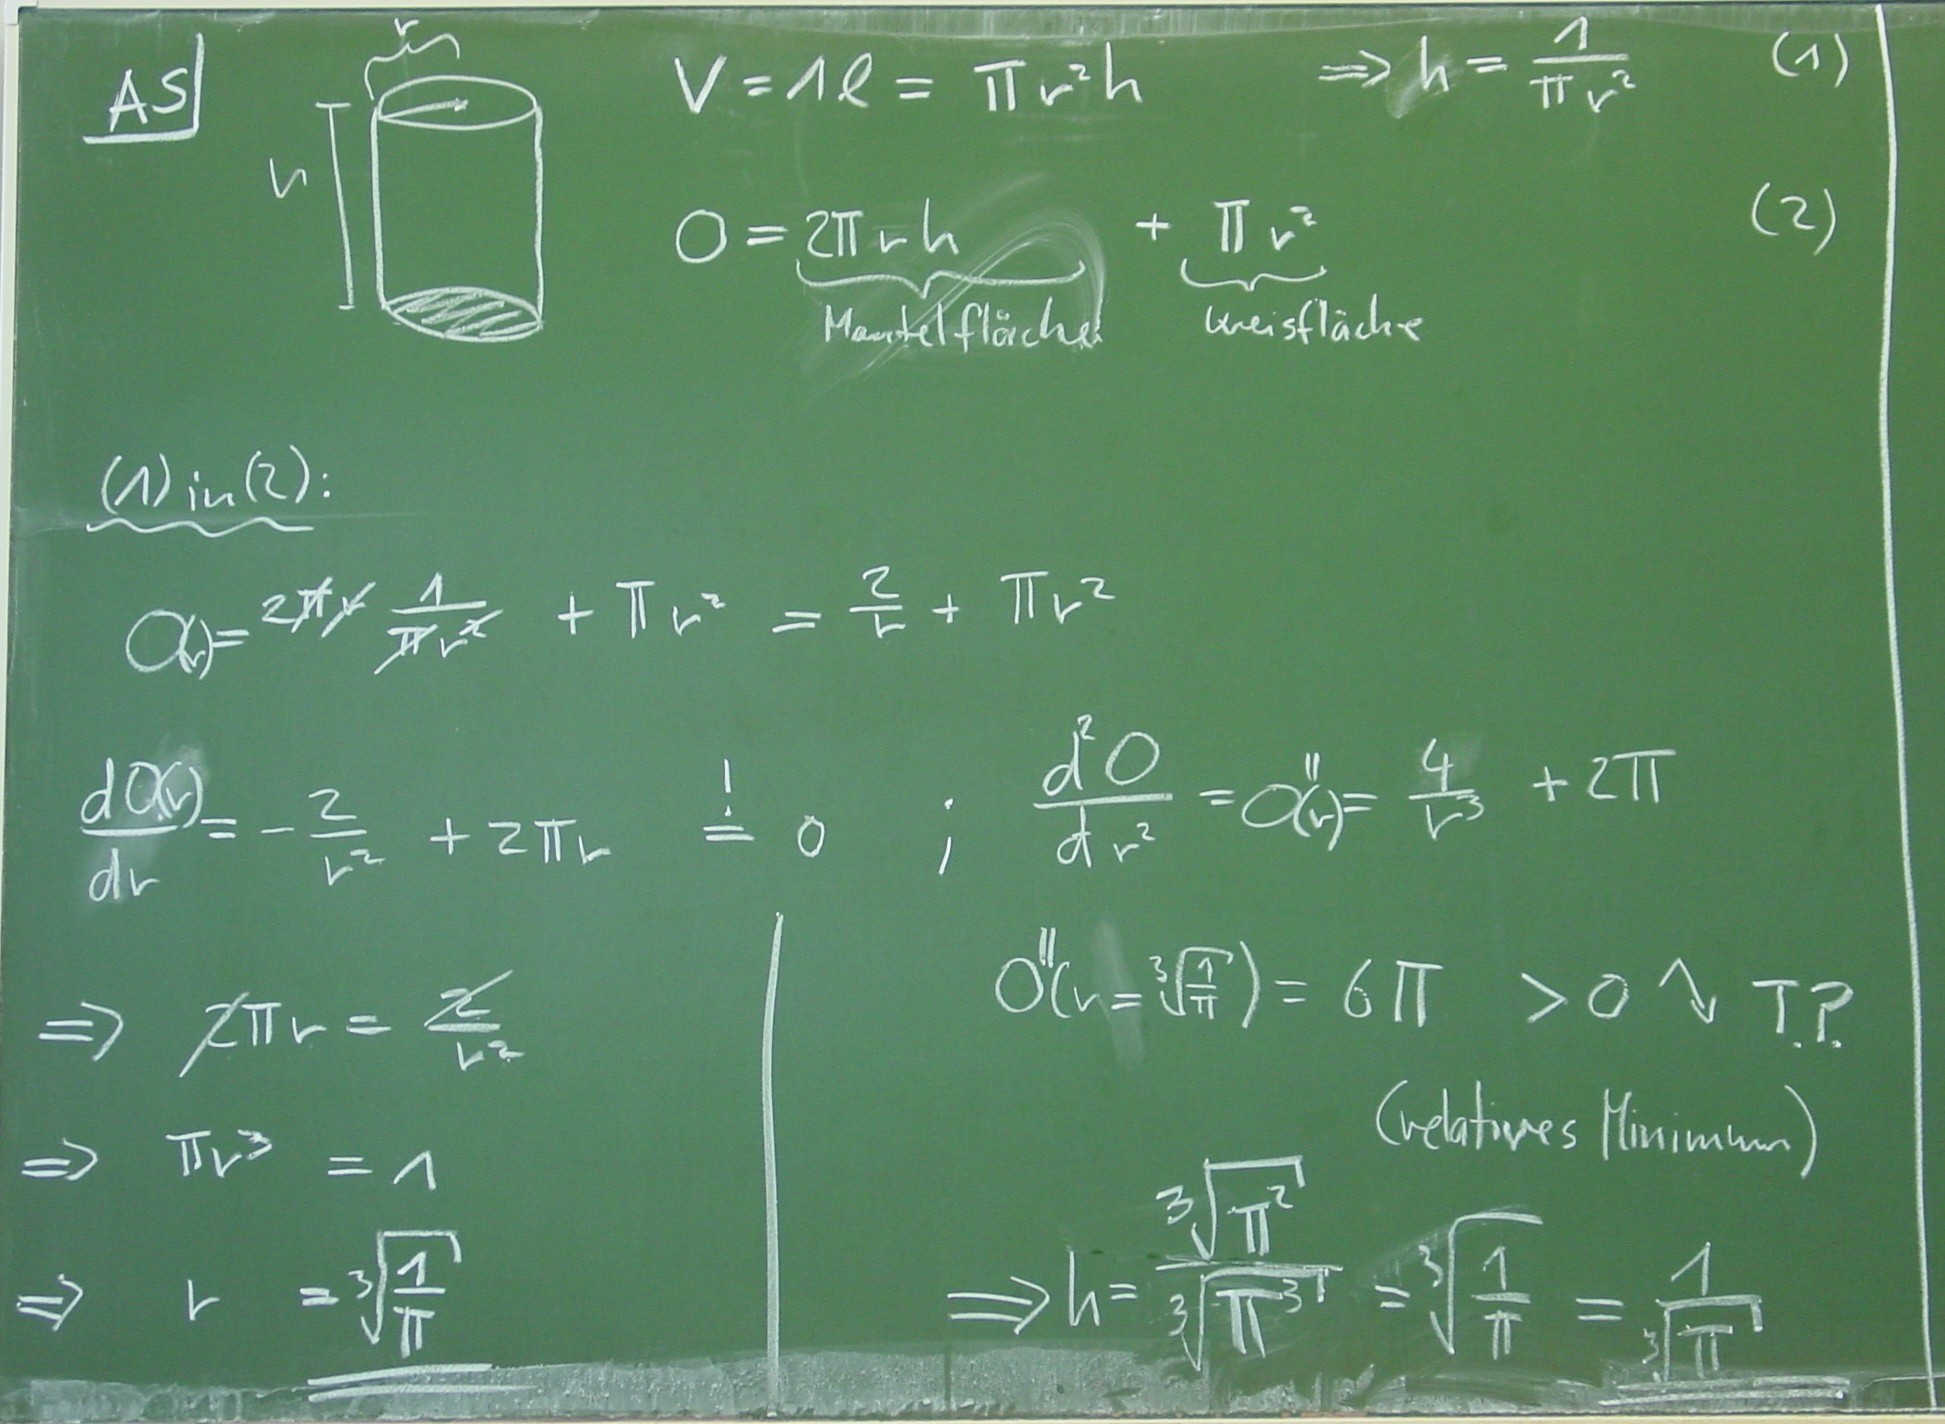 AS
r
h
V = 1 l = π r² h ⇒ h = 1/(π r²) (1)
O = 2π r h + π r² (2)
Mantelfläche Kreisfläche
(1) in (2):
O(r) = 2πr 1/(πr²) + π r² = 2/r + π r²
dO(r)/dr = - 2/r² + 2πr =! 0 ; d²O/dr² = O''(r) = 4/r³ + 2π
⇒ 2πr = 2/r²
O''(r = ∛(1/π)) = 6π > 0 ↘ T.P.
(relatives Minimum)
⇒ πr³ = 1
⇒ r = ∛(1/π)
⇒ h = ∛(π²)/∛(π³) = ∛(1/π) = 1/∛π